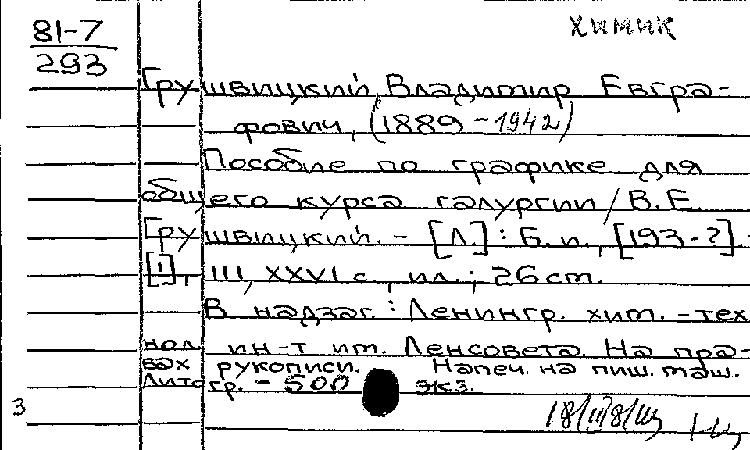 химик
81-7
293
Грушвицкий, Владимир Евгра-
фович, (1889-1942)
Пособие по графике для
общего курса галургии / В.Е.
Грушвицкий. - [Л.] : Б.и., [193-?] -
[1], III, XXVI с., ил.; 26 см.
В надзаг.: Ленингр. хим.-тех
нол ин-т им. Ленсовета. На пра-
вах рукописи. Напеч. на пиш. маш.
Литогр. - 500 экз.
3